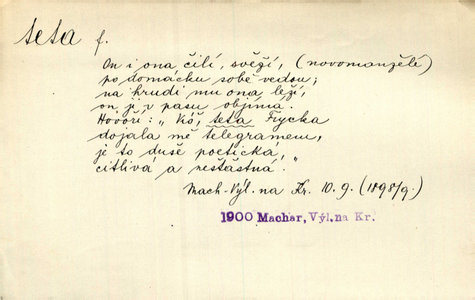 teta f.
On i ona čilí, svěží, (novomanželé)
po domácku sobě vedou;
na hrudi mu ona leží,
on ji v pasu objímá.
Hovoří: „Víš, teta Frycka
dojala mě telegramem,
je to duše poetická,
citlivá a nešťastná."
Mach-Výl. na Kr. 10.9. (1898/9.)
1900 Machar, Výl.na Kr.